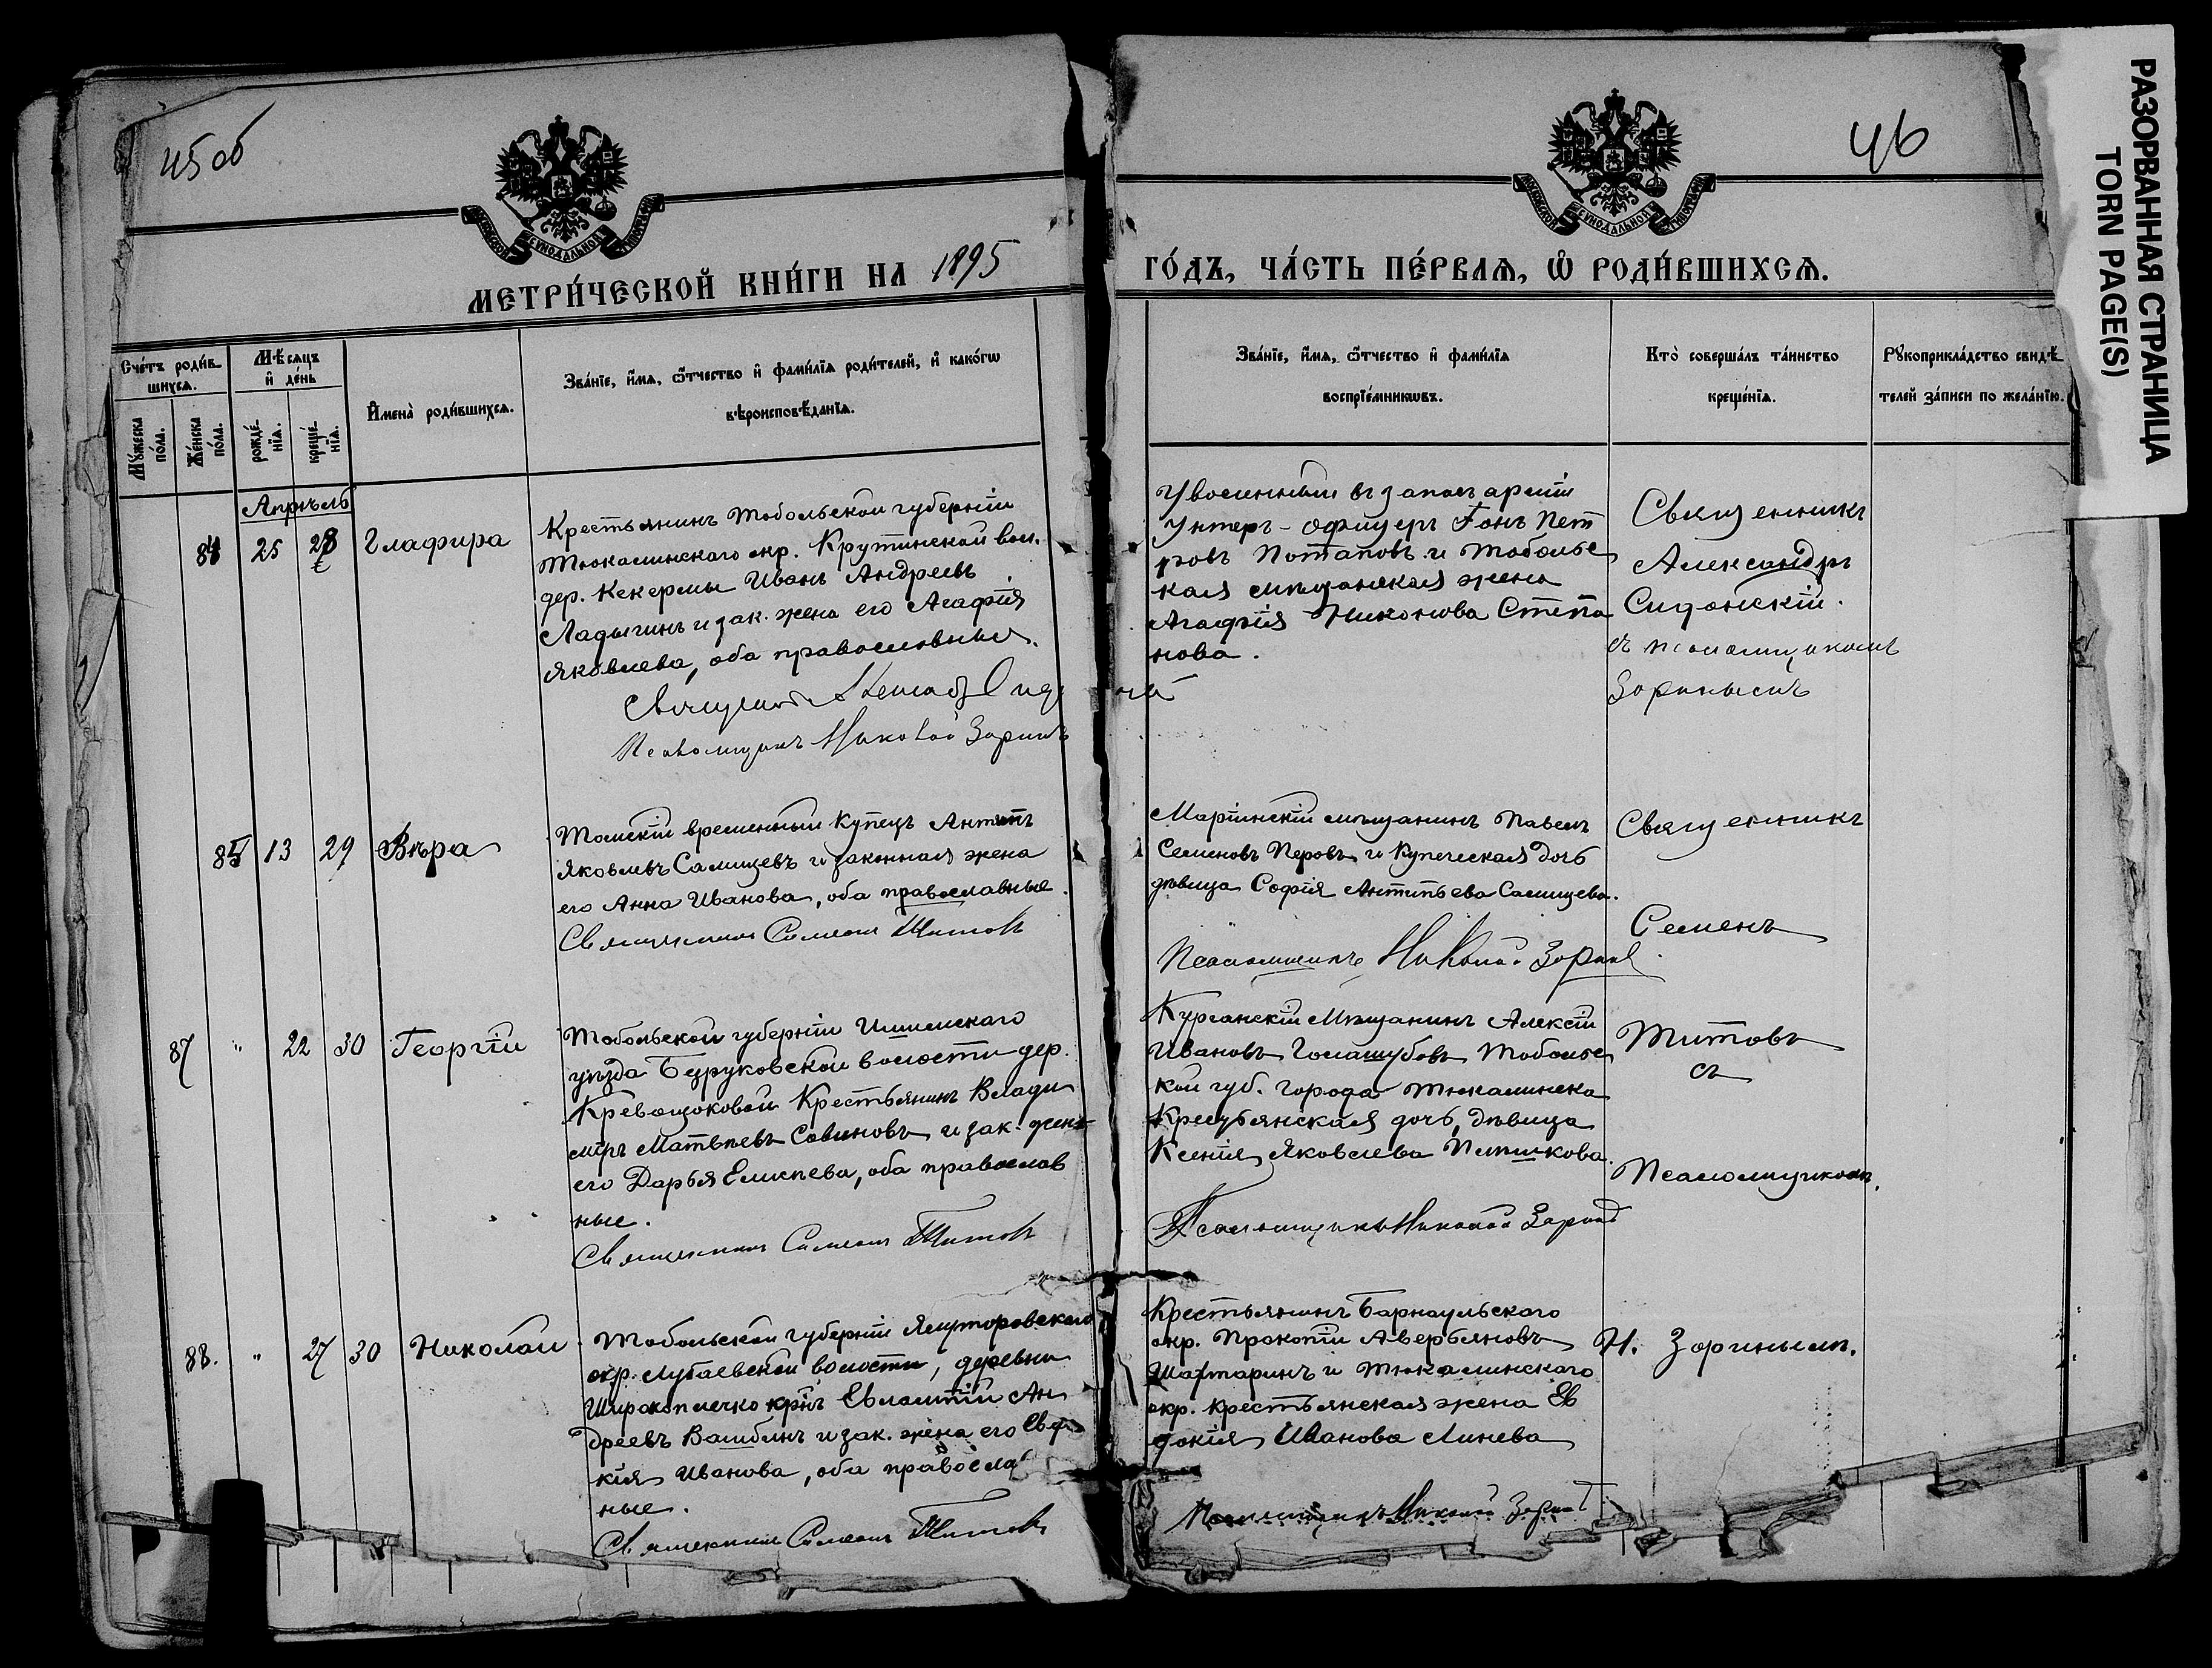 45 об
46
РАЗОРВАННАЯ СТРАНИЦА
TORN PAGE(S)
МЕТРИ́ЧЕСКОЙ КНИ́ГИ НА 1895
ГО́ДЪ, ЧА́СТЬ ПЕ́РВАѦ, Ѡ҆ РОДИ́ВШИХСѦ.
Сче́тъ роди́в-
шихсѧ.
Му́жеска
по́ла.
Же́нска
по́ла.
Мѣ́сѧцъ
и҆ де́нь
рожде́-
нїѧ.
креще́-
нїѧ.
И҆мена̀ роди́вшихсѧ.
Зва́нїе, и҆́мѧ, ѻ҆́тчество и҆ фами́лїѧ роди́телей, и҆ како́гѡ
вѣроисповѣ́данїѧ.
Зва́нїе, и҆́мѧ, ѻ҆́тчество и҆ фами́лїѧ
воспрїе́мникѡвъ.
Кто̀ соверша́лъ та́инство
креще́нїѧ.
Рꙋкоприкла́дство свидѣ́-
телей за́писи по жела́нїю.
Апрѣль
84 25 28 Глафира
Крестьянинъ Тобольской губерніи
Тюкалинскаго окр. Крутинской вол.
дер. Кекермы Иванъ Андреевъ
Ладыгинъ и зак. жена его Агафія
Яковлева, оба православные.
Николай Зоринъ
Уволенный въ запасъ арміи
Унтеръ-офицеръ Іонъ Пет
ровъ Потаповъ и Тобольс
кая мѣщанская жена
Агафія Никонова Степа
нова.
Священникъ
Александръ
Сидонскій.
съ псаломщикомъ
Зоринымъ
85 13 29 Вѣра
Томскій временный купецъ Антипъ
Яковлевъ Самцевъ и законная жена
его Анна Иванова, оба православные.
Священникъ Симеонъ Титовъ
Маріинскій мѣщанинъ Павелъ
Семеновъ Перовъ и Купеческая дочь
дѣвица Софія Антипьева
Псаломщикъ Николай Зоринъ
Священникъ
Семенъ
87 " 22 30 Георгій
Тобольской губерніи Ишимскаго
уѣзда Безруковской волости дер.
Кревощоковой Крестьянинъ Влади
міръ Матвѣевъ Савиновъ и зак. жена
его Дарья Елисѣева, оба православ
ные.
Священникъ Симеонъ Титовъ
Курганскій Мѣщанинъ Алексій
Ивановъ Голашубовъ Тобольс
кой губ. города Тюкалинска
Крестьянская дочь, дѣвица
Ксенія Яковлева
Псаломщикъ Николай Зоринъ
Титовъ
съ
Псаломщикомъ
88. " 27 30 Николай
Тобольской губерніи Ялуторовскаго
окр. волости, деревни
Широкоплечко кр-нъ Евлампій Ан
дреевъ и зак. жена его Евдо
кія Иванова, оба православ
ные.
Священникъ Симеонъ Титовъ
Крестьянинъ Барнаульскаго
окр. Прокопій Аверьяновъ
и Тюкалинскаго
окр. крестьянская жена Ев
докія Иванова Линева
Псаломщикъ Николай Зоринъ
Н. Зоринымъ.